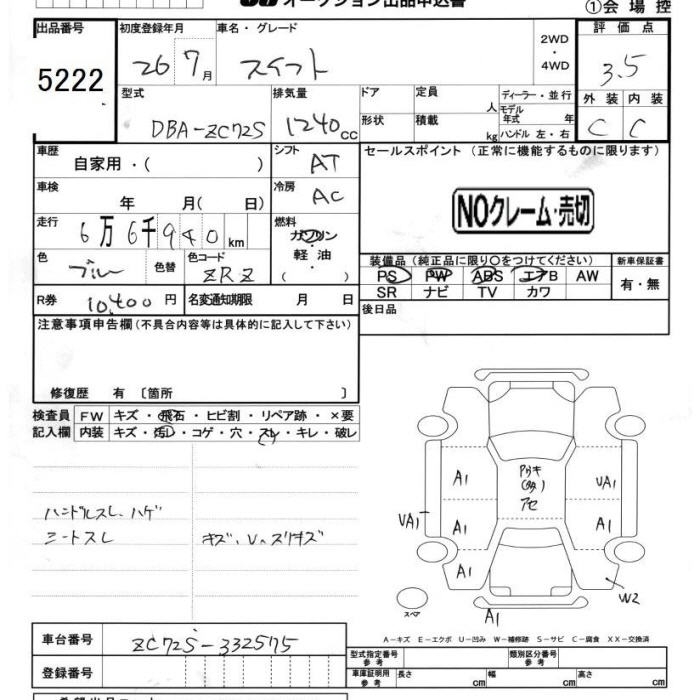 オークション出品申込書
①会場控
出品番号 初度登録年月 車名・グレード 2WD・4WD 評価点
5222 26 7月 スイフト 3.5
型式 排気量 ドア 定員 人 ディーラー・並行 外装 内装
DBA-ZC72S 1240cc 形状 積載 kg モデル年式 年 ハンドル 左・右 C C
車歴 自家用・( ) シフト AT セールスポイント (正常に機能するものに限ります)
車検 年 月( 日) 冷房 AC
NOクレーム・売切
走行 6万6千940km 燃料 ガソリン・軽油・
色 ブルー 色替 色コード ZRZ
装備品(純正品に限り〇をつけてください) 新車保証書
PS PW ABS エアB AW 有・無
SR ナビ TV カワ
R券 10,400円 名変通知期限 月 日 後日品
注意事項申告欄(不具合内容等は具体的に記入して下さい)
修復歴 有 〔箇所 〕
検査員 FW キズ・飛石・ヒビ割・リペア跡・×要
記入欄 内装 キズ・汚れ・コゲ・穴・スレ・キレ・破レ
ハンドルスレ、ハゲ
シートスレ キズ、U、スリキズ
A1 UA1
アセ
UA1 A1 A1
A1 W2
スペア A1
A-キズ E-エクボ U-凹み W-補修跡 S-サビ C-腐食 XX-交換済
車台番号 ZC72S-332575
登録番号
型式指定番号 参考 類別区分番号 参考
車庫証明用 参考 長さ cm 幅 cm 高さ cm